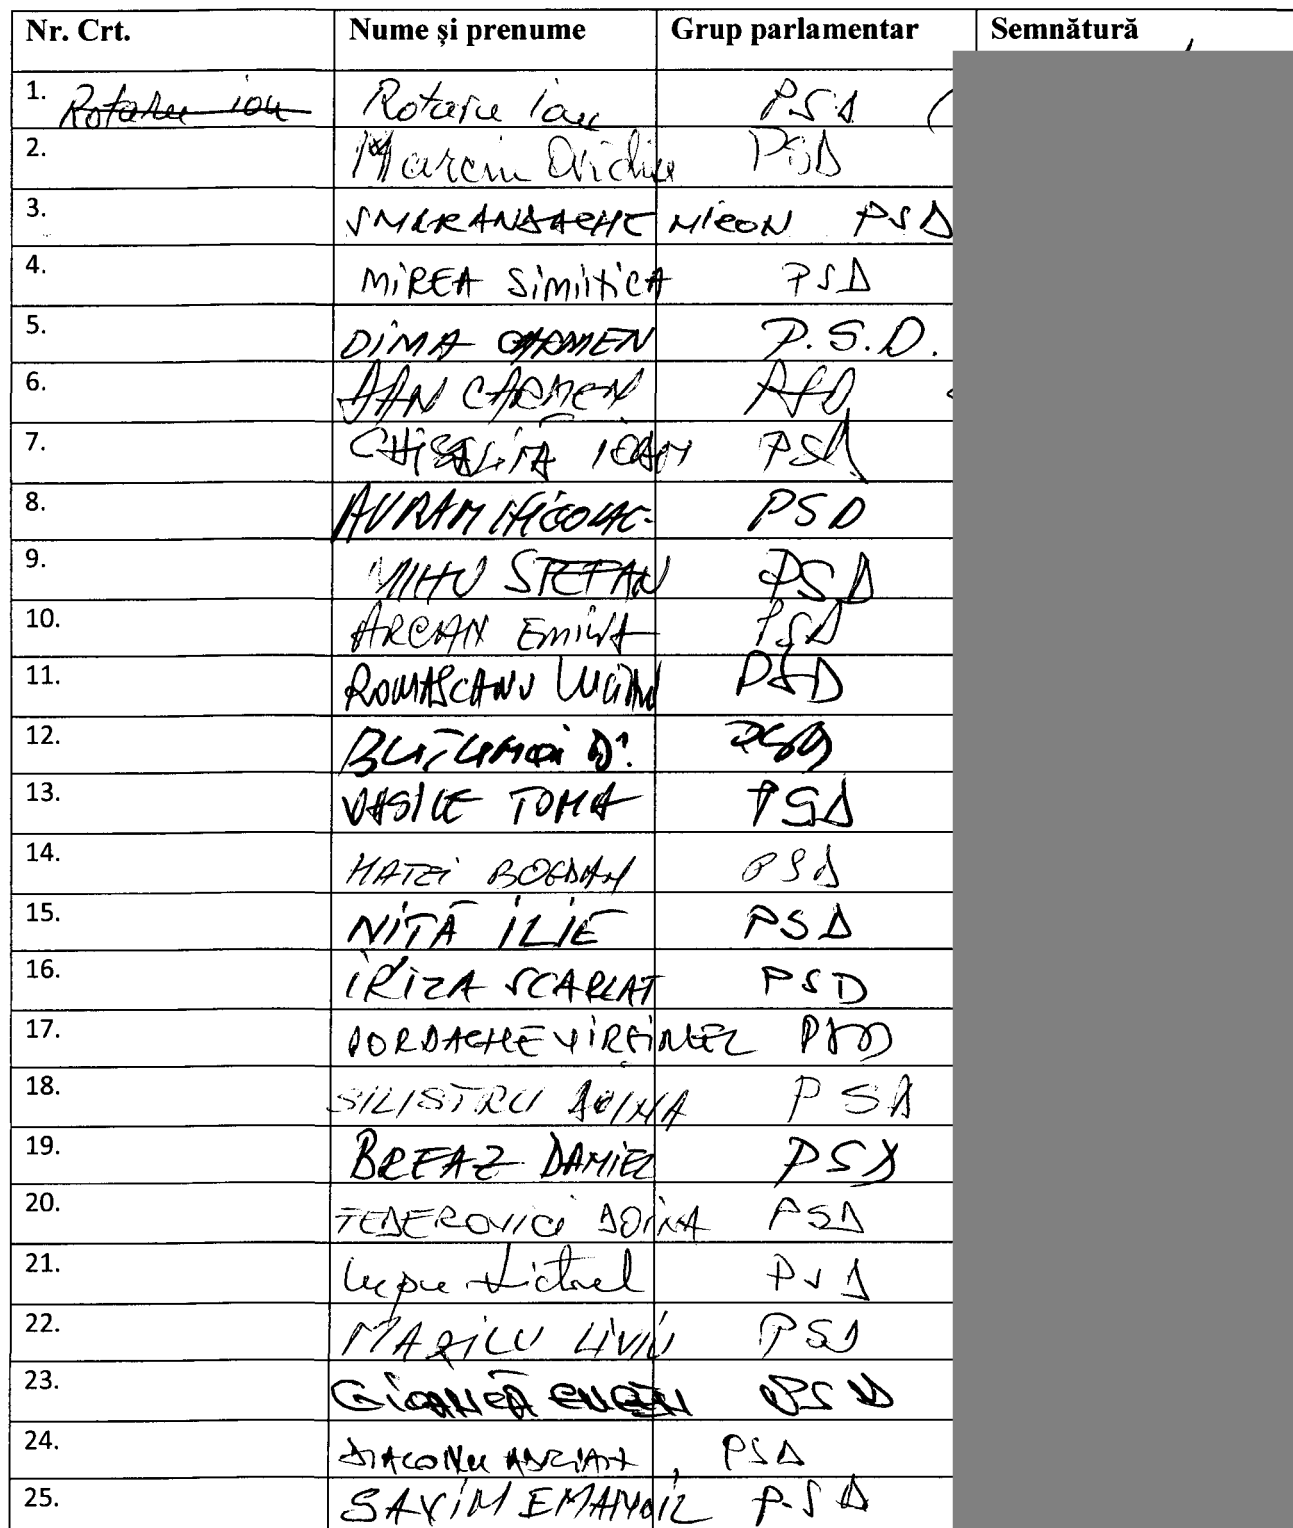 Nr. Crt. Nume și prenume Grup parlamentar Semnătură
1. Rotaru ion Rotaru Ion PSD
2. Marciu Ovidiu PSD
3. SMARANDACHE MIRON PSD
4. MIREA SimiticA PSD
5. DIMA CARMEN P.S.D.
6. DAN CARMEN PSD
7. CHISALIȚĂ IOAN PSD
8. AVRAM NICOLAE PSD
9. MIHU STEFAN PSD
10. ARCAN EMILIA PSD
11. ROMASCANU LUCIAN PSD
12. PSD
13. VASILE TOMA PSD
14. MATEI BOGDAN PSD
15. NITĂ ILIE PSD
16. IRIZA SCARLAT PSD
17. IORDACHE VIRGINEL PSD
18. SILISTRU DOINA PSD
19. BREAZ DANIEL PSD
20. FEDEROVICI DOINA PSD
21. Lupu Victorel PSD
22. MAZILU LIVIU PSD
23. GIOANCĂ EUGEN PSD
24. DIACONU ADRIAN, PSD
25. SAVIN EMANOIL P.SD